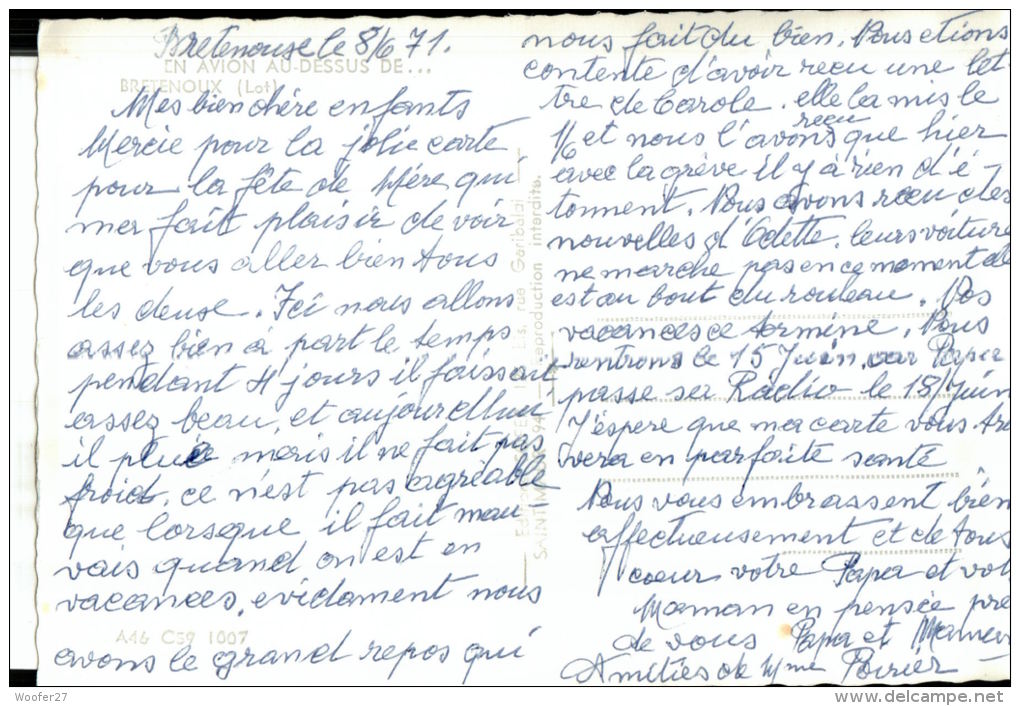 Bretenouse le 8/6 71.
EN AVION AU-DESSUS DE...
BRETENOUX (Lot)
Mes bien chère enfants
Mercie pour la jolie carte
pour la fête de Mère qui
mer fait plaisir de voir
que vous aller bien tous
les deuse. Ici nous allons
assez bien à part le temps
pendant 4 jours il faissait
assez beau, et aujourdhui
il pluie mais il ne fait pas
froid, ce n'est pas agréable
que lorsque il fait mau
vais quand on est en
vacances, evidament nous
avons le grand repos qui
A46 C59 1007
nous fait du bien. Nous etions
contente d'avoir reçu une let-
tre de Carole. elle la mis le
et nous l'avons reçu que hier
avec la grève il y à rien d'é-
tonnent. Nous avons reçu des
nouvelles d'Odette. leurs voiture
ne marche pas en ce moment elle
est au bout du rouleau. Nos
vacances ce termine. Nous
rentrons le 15 Juin, car Papa
passe sa Radio le 18/Juin
J'éspere que ma carte vous trou
vera en parfaite santé
Nous vous embrassent bien
affectueusement et de tous
coeur votre Papa et vot
Maman en pensée pre
de vous Papa et Maman
Amitiés de Mme Poirier
rue Garibaldi
reproduction interdite.
Woofer27
delcampe.net